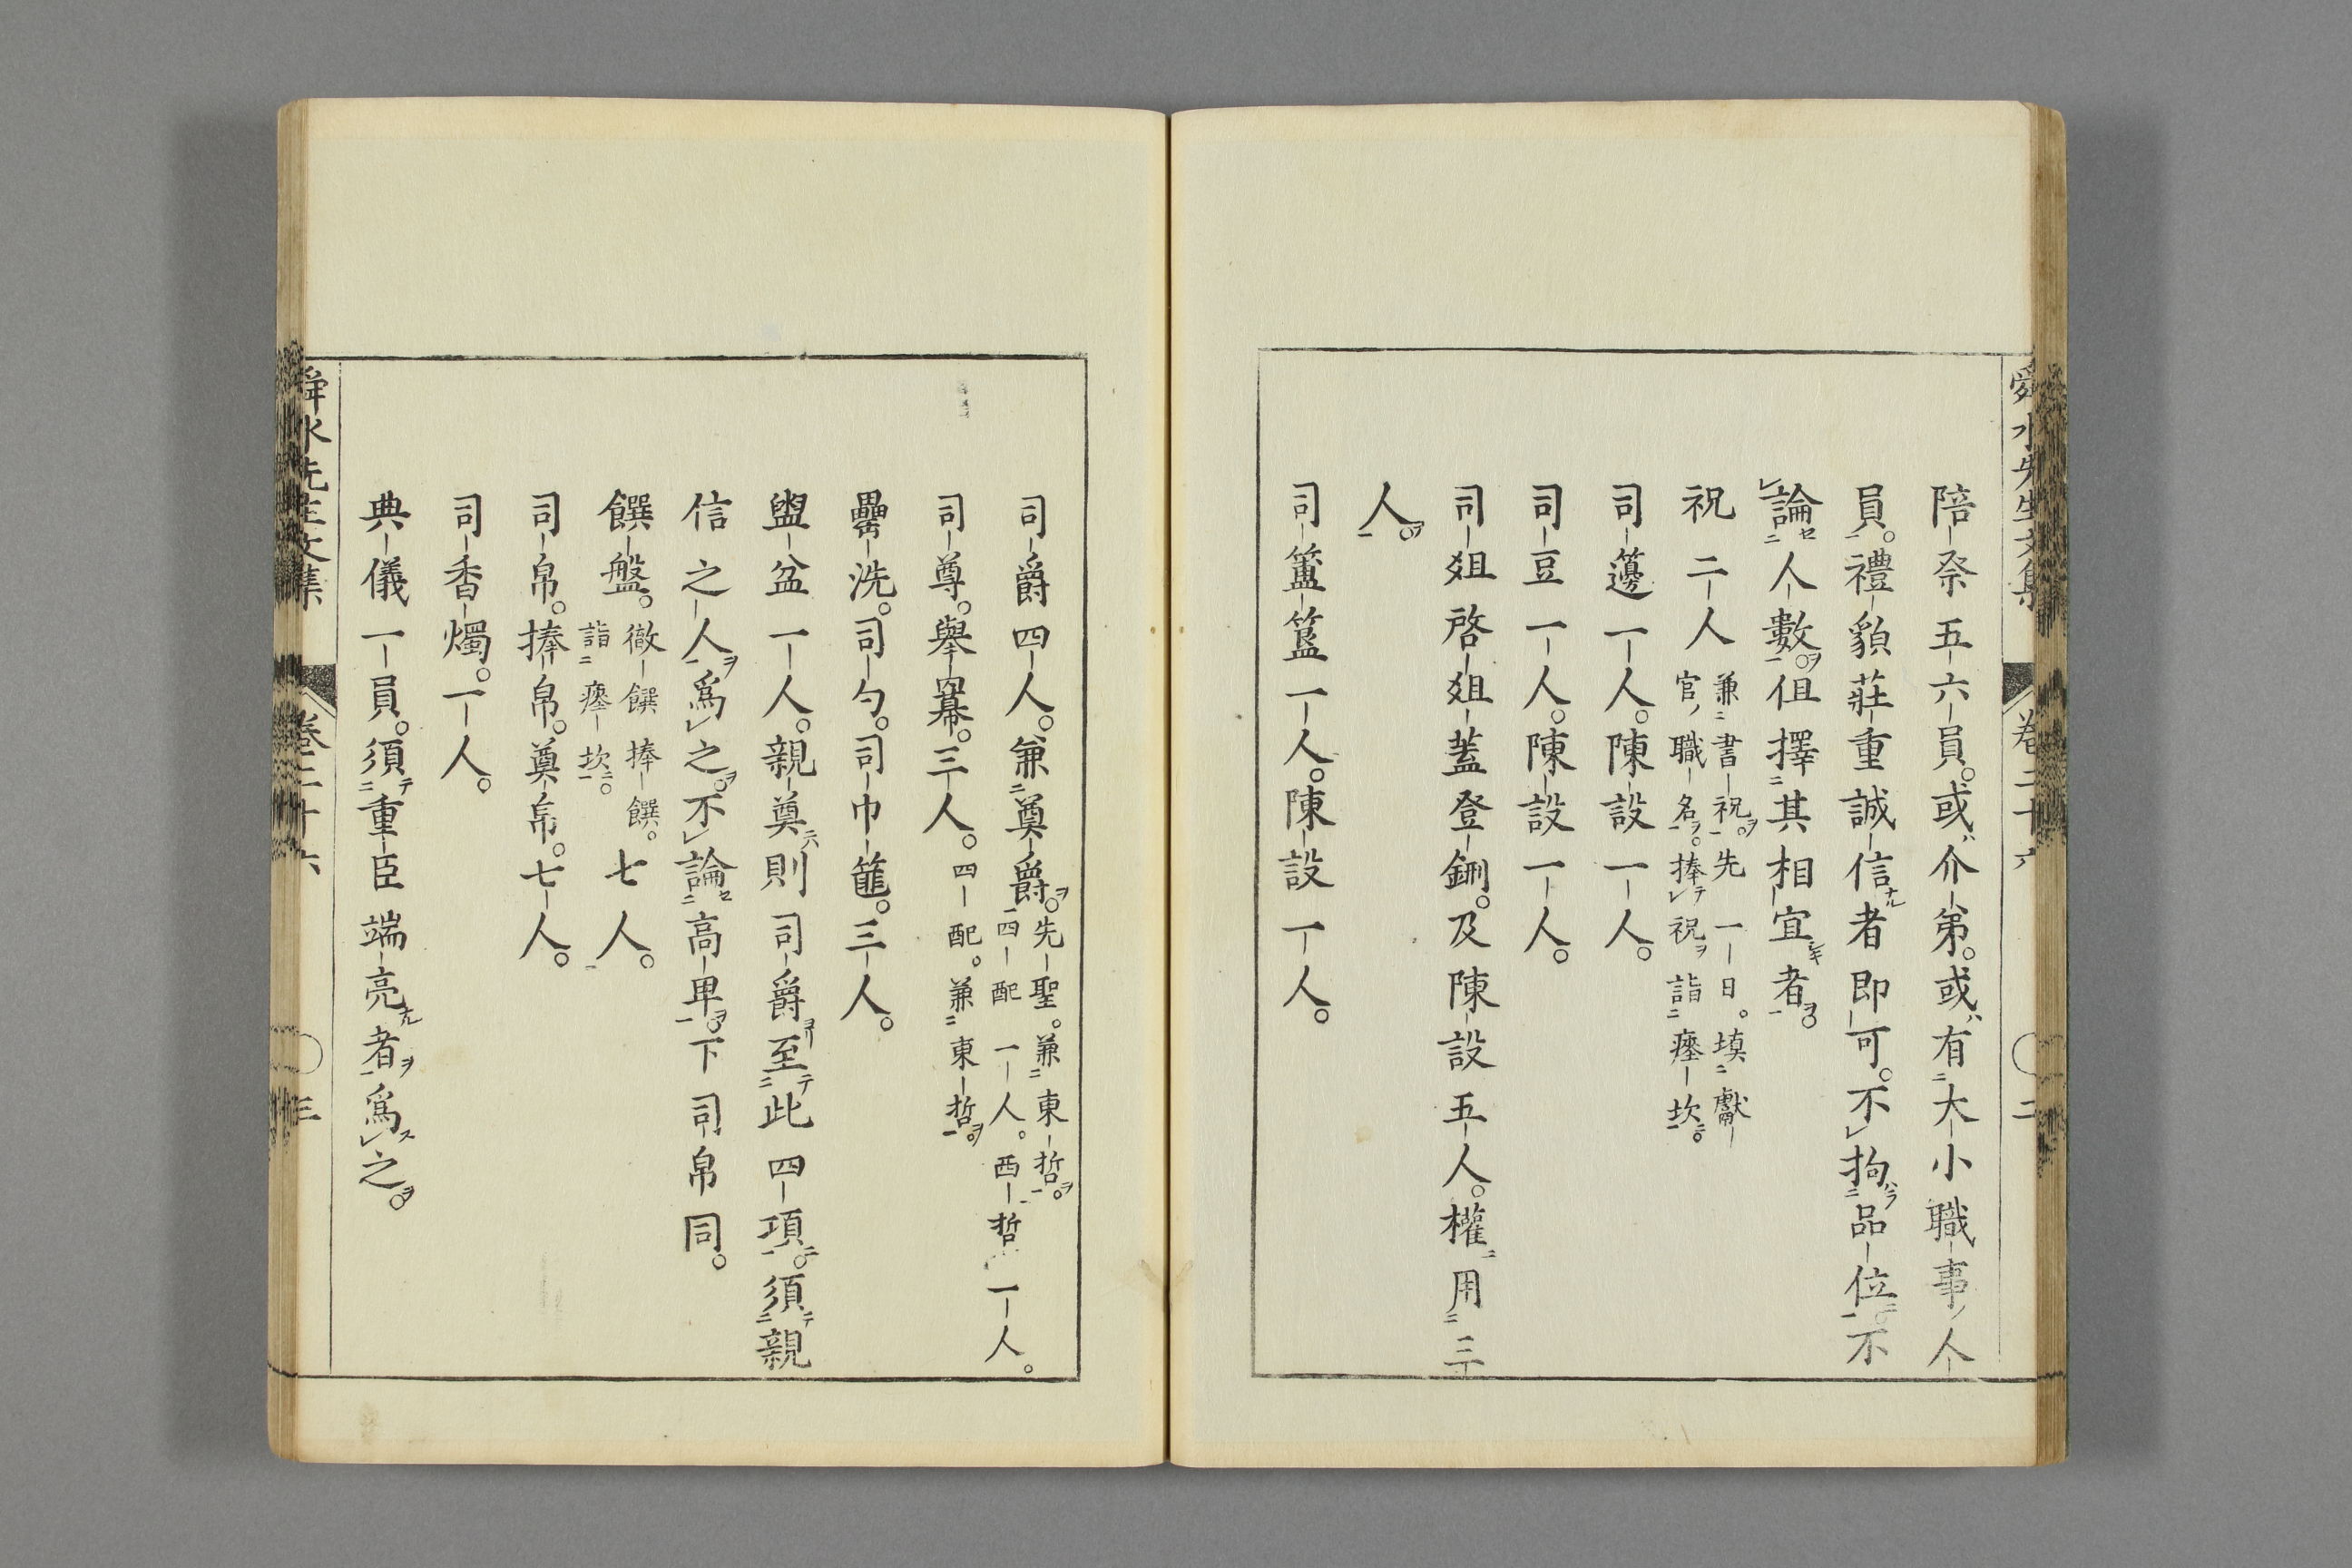 陪祭五六員。或介弟。或有大小職事人
員。禮貌莊重誠信者即可。不拘品位。不
論人數。但擇其相宜者。
祝二人 兼書祝。先一日。填獻
官職名。捧祝詣瘞坎。
司籩一人。陳設一人。
司豆一人。陳設一人。
司俎啓俎蓋登鉶。及陳設五人。權用三
人。
司簠簋一人。陳設一人。
舜水先生文集 卷二十六 二
司爵四人。兼奠爵。先聖。兼東哲。
四配一人。西哲一人。
司尊。舉冪。三人。四配。兼東哲。
罍洗。司勺。司巾篚。三人。
盥盆一人。親奠則司爵至此四項。須親
信之人爲之。不論高卑。下司帛同。
饌盤。徹饌捧饌。
詣瘞坎。七人。
司帛。捧帛。奠帛。七人。
司香燭。一人。
典儀一員。須重臣端亮者爲之。
舜水先生文集 卷二十六 三